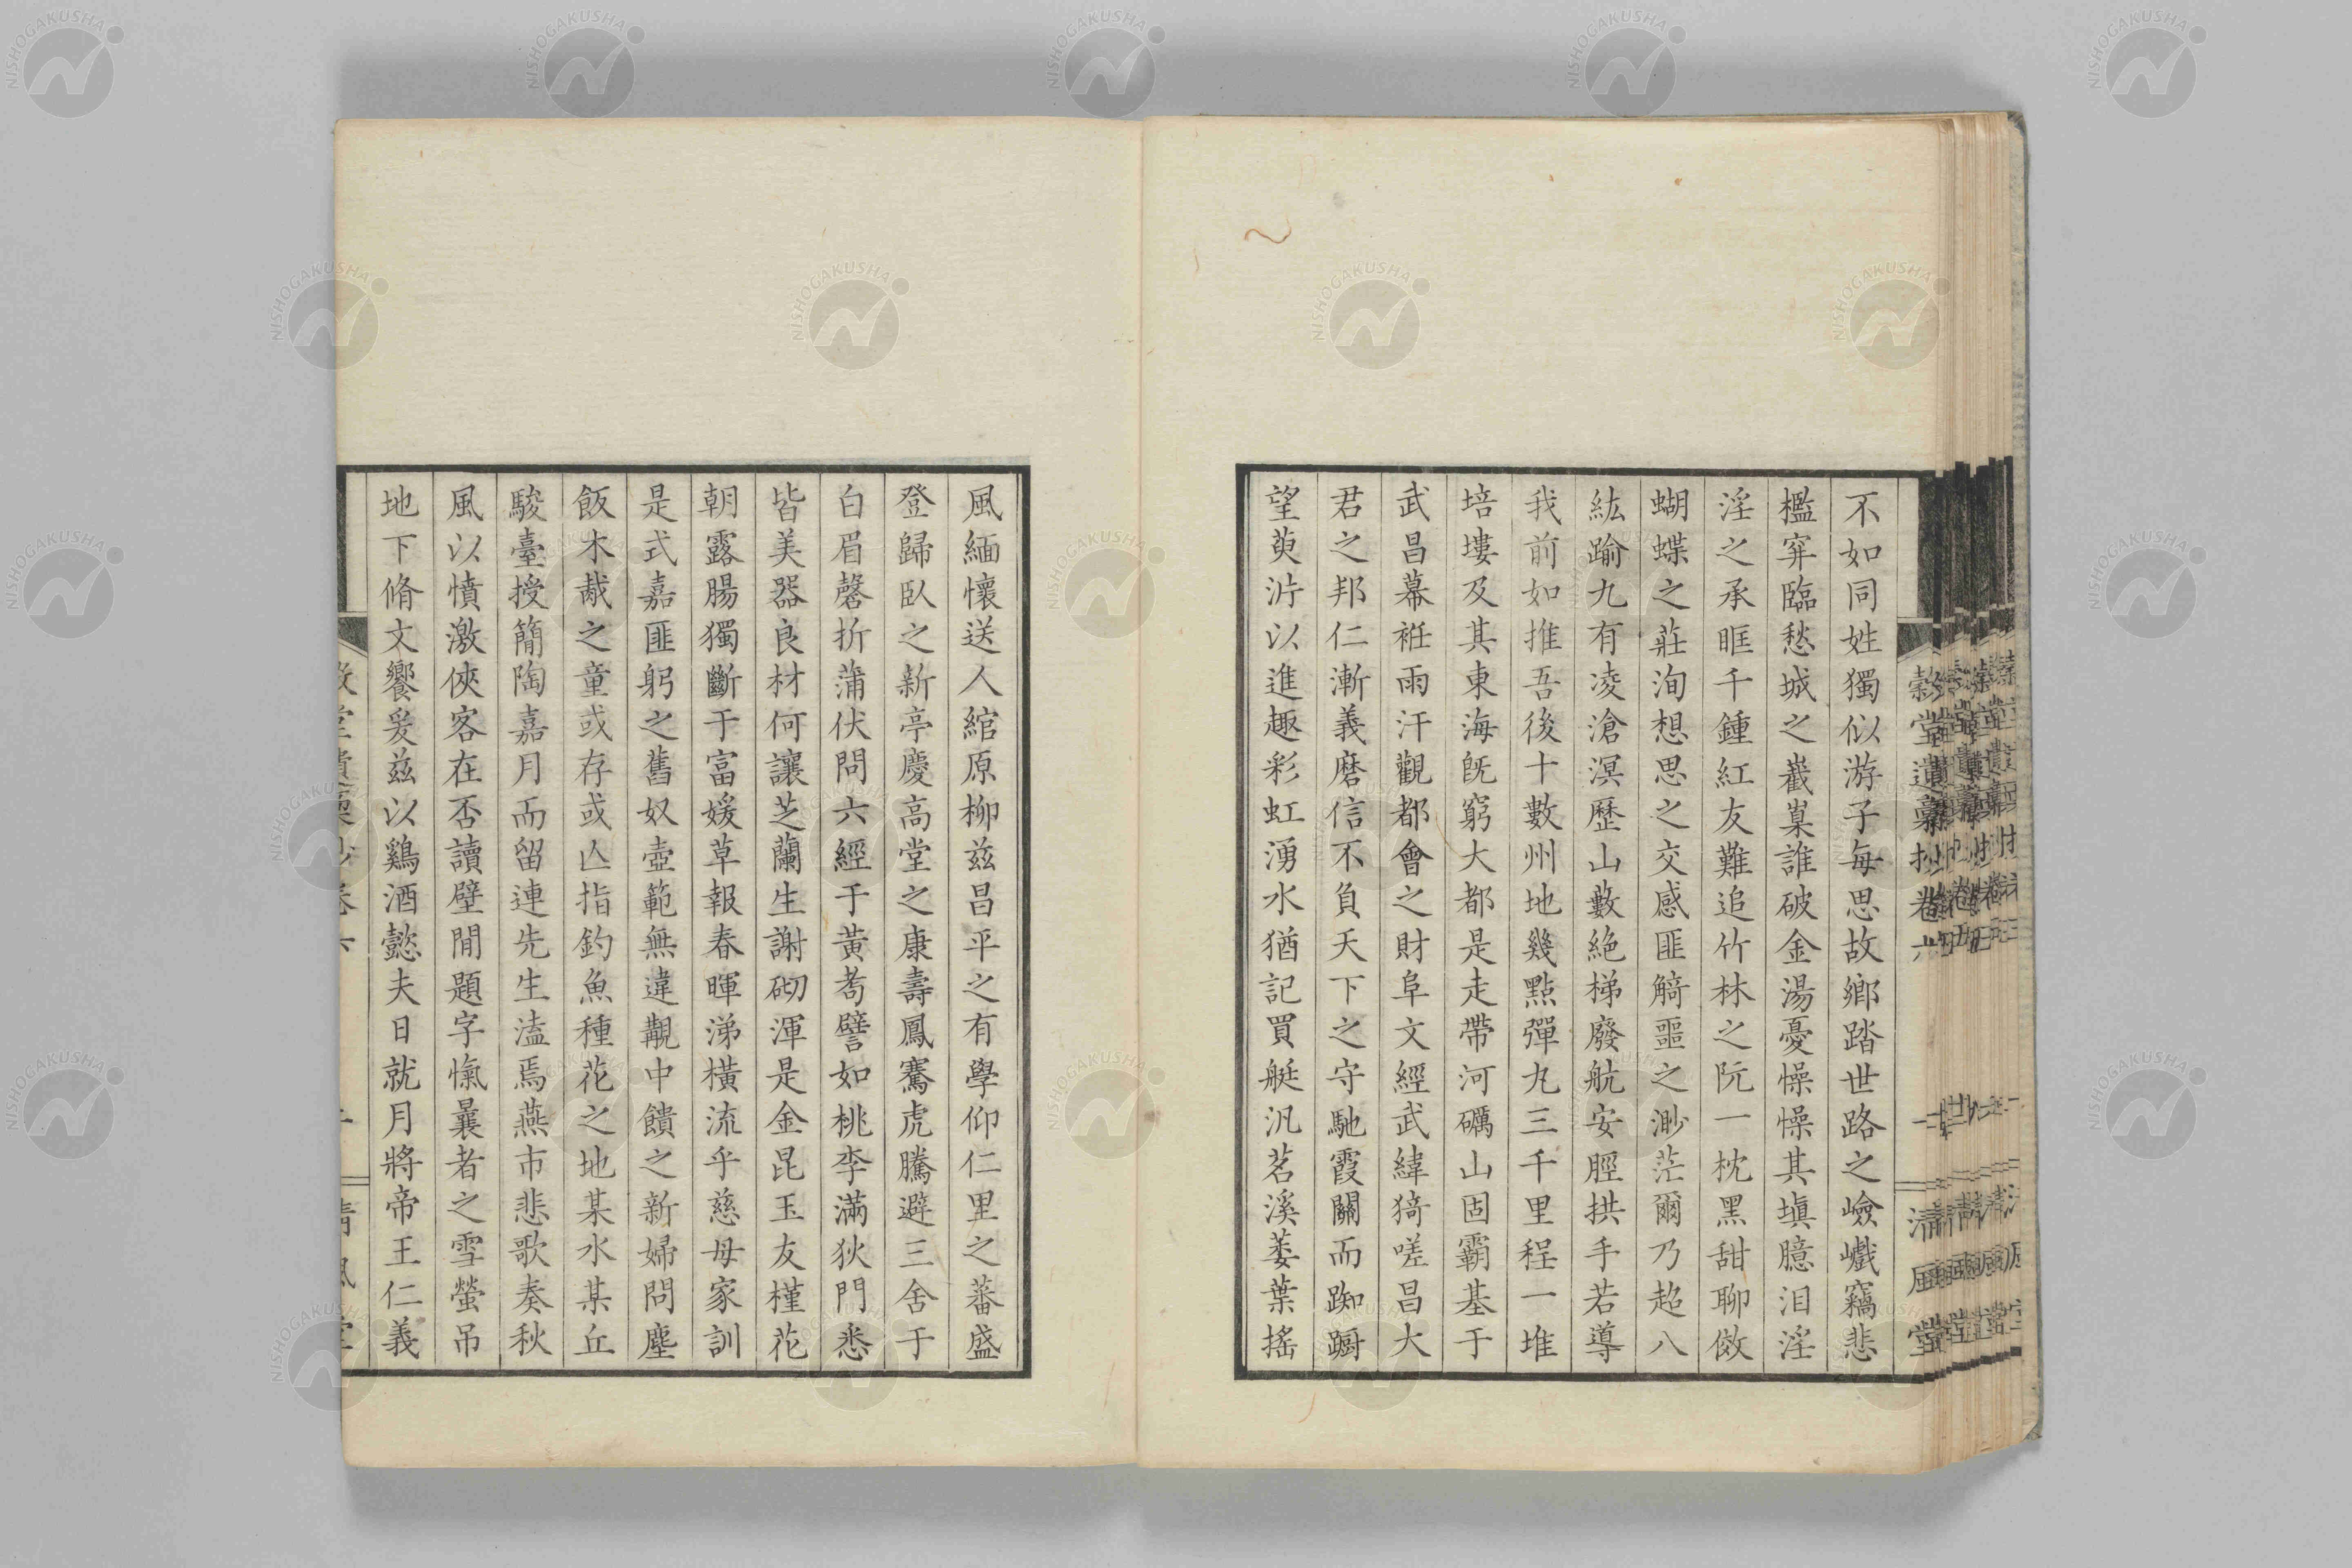 不如同姓獨似游子每思故鄉踏世路之嶮巇竊悲
檻穽臨愁城之巀嶪誰破金湯憂懆懆其塡臆泪淫
淫之承眶千鍾紅友難追竹林之阮一枕黑甜聊傚
蝴蝶之莊洵想思之交感匪觭噩之渺茫爾乃超八
紘踰九有凌滄溟歷山藪絶梯廢航安脛拱手若導
我前如推吾後十數州地幾點彈丸三千里程一堆
培塿及其東海旣窮大都是走帶河礪山固霸基于
武昌幕袵雨汗觀都會之財阜文經武緯猗嗟昌大
君之邦仁漸義磨信不負天下之守馳霞關而踟躕
望萸沜以進趣彩虹湧水猶記買艇汎茗溪蔞葉搖
風緬懷送人綰原柳茲昌平之有學仰仁里之蕃盛
登歸臥之新亭慶高堂之康壽鳳騫虎騰避三舍于
白眉磬折蒲伏問六經于黃耇譬如桃李滿狄門悉
皆美器良材何讓芝蘭生謝砌渾是金昆玉友槿花
朝露腸獨斷于富媛草報春暉涕橫流乎慈母家訓
是式嘉匪躬之舊奴壺範無違覯中饋之新婦問塵
飯木胾之童或存或亾指釣魚種花之地某水某丘
駿臺授簡陶嘉月而留連先生溘焉燕市悲歌奏秋
風以憤激俠客在否讀壁間題字愾曩者之雪螢吊
地下脩文饗爰茲以鷄酒懿夫日就月將帝王仁義
穀堂遺稾抄卷六
清風堂
NISHOGAKUSHA